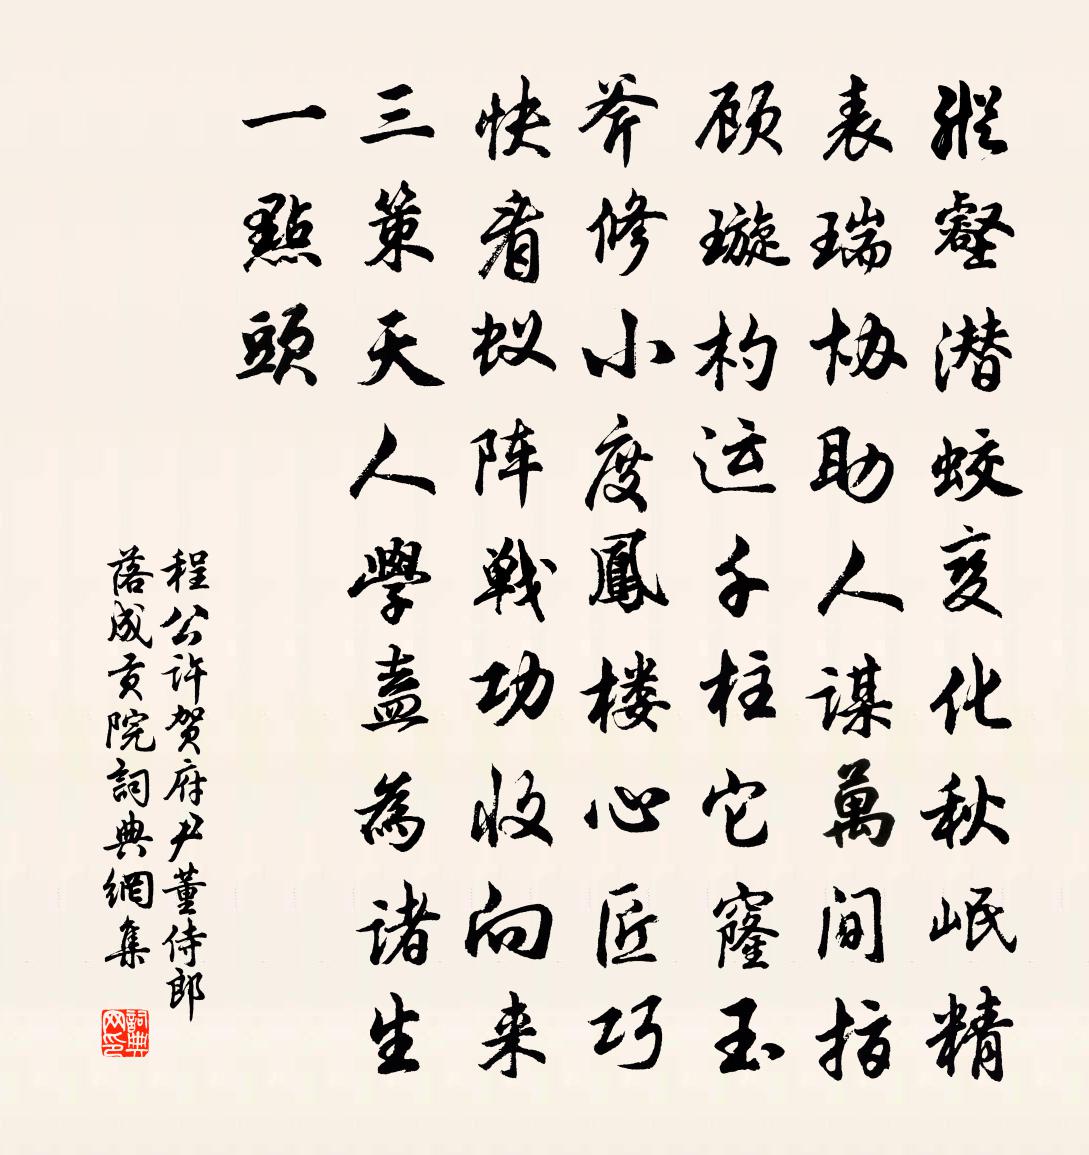 縱壑潜蛟变化秋岷精
表瑞协助人谋萬间指
顾璇杓运千柱它窿玉
斧修小度鳳楼心匠巧
快看蚁阵戦功收向来
三策天人學盍為诸生
一點頭
程公许贺府尹董侍郎
落成贡院詞典網集
詞典网印